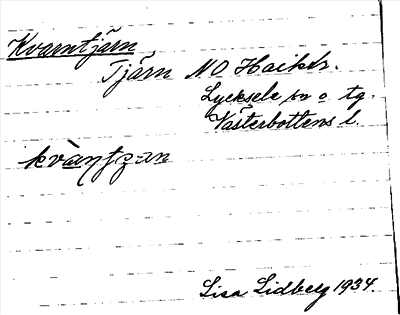 Kvarntjärn
Tjärn NO Haikts.
Lycksele sn o. tg.
Västerbottens l.
Lisa Lidberg 1934.